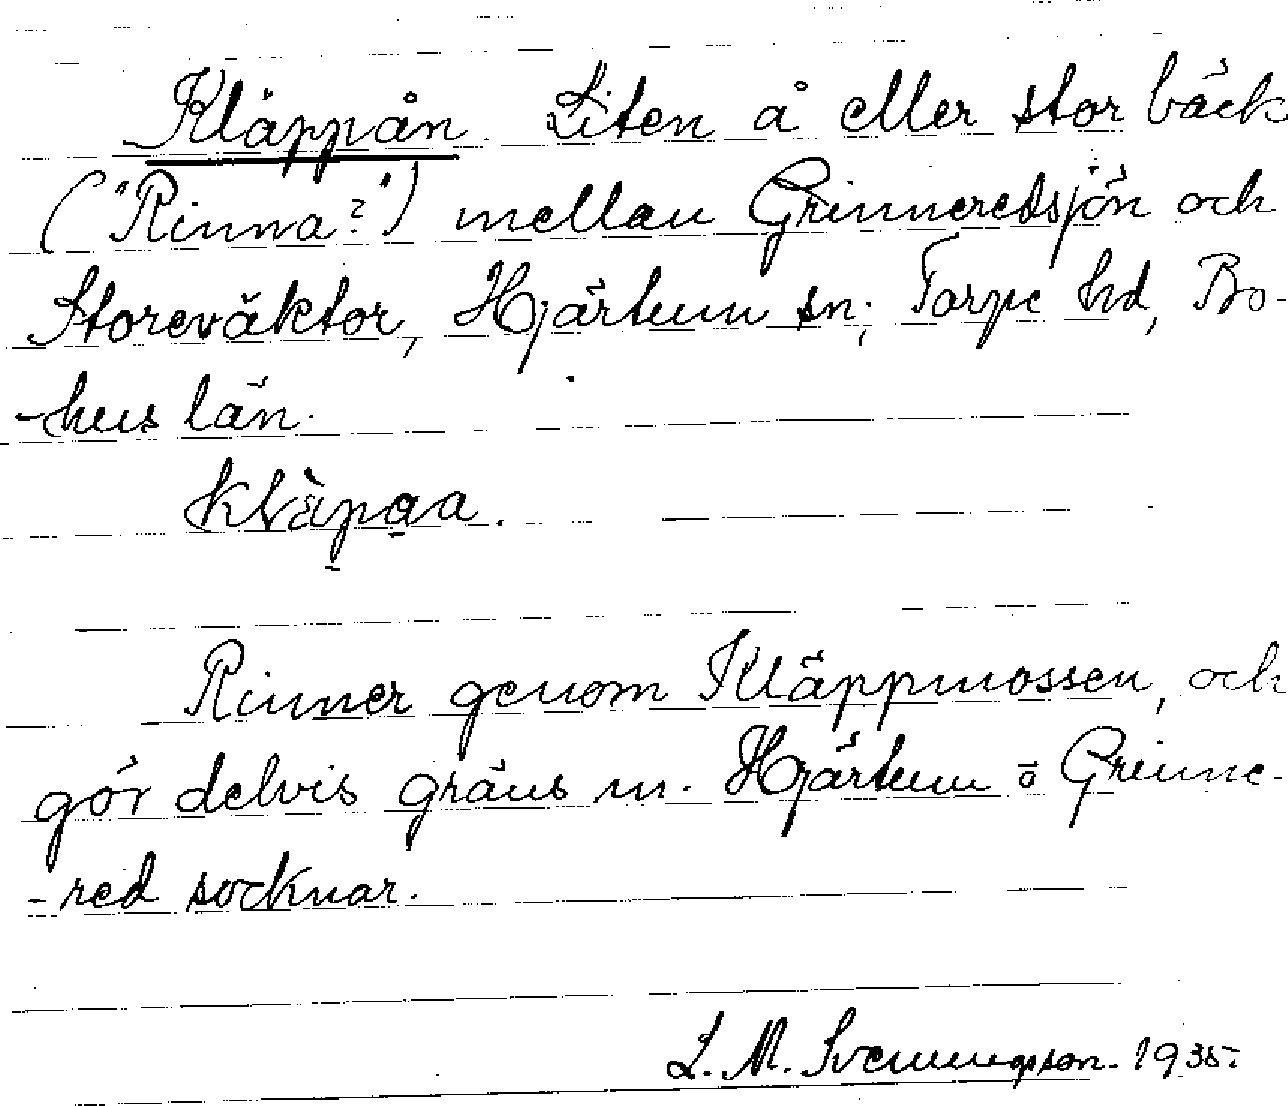 Kläppån Liten å eller stor bäck
("Rinna?") mellan Grinneredsjön och
Storeväktor, Hjärtum sn; Torpe hd, Bo-
-hus län.
Rinner genom Kläppmossen, och
gör delvis gräns m. Hjärtum o Grinne-
-red socknar.
L. M. Svenungsson. 1935.